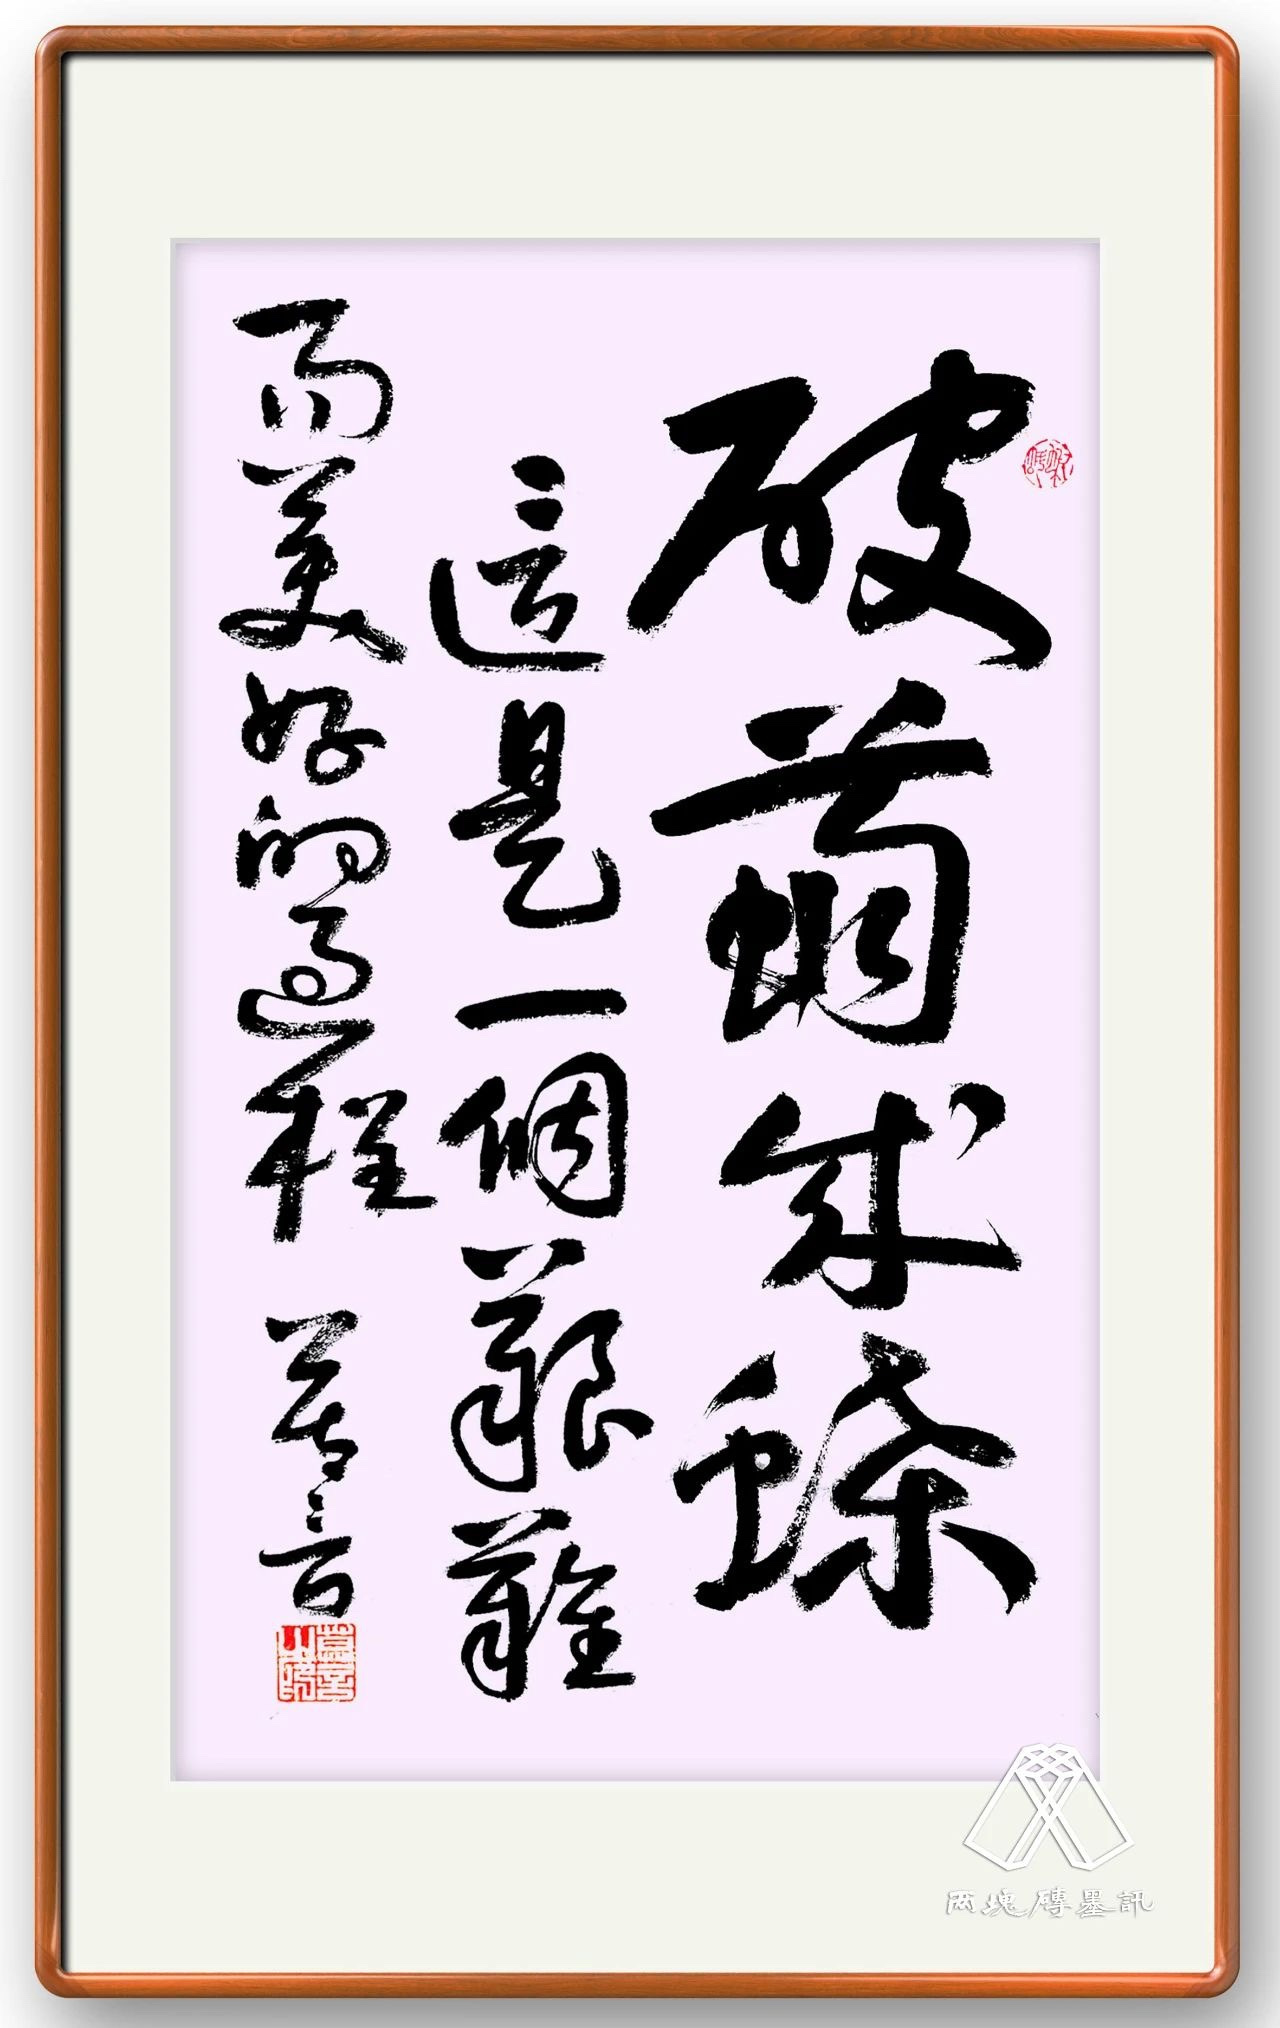 破繭成蝶
這是一個艱難
而美好的過程 莫言
兩塊磚墨訊